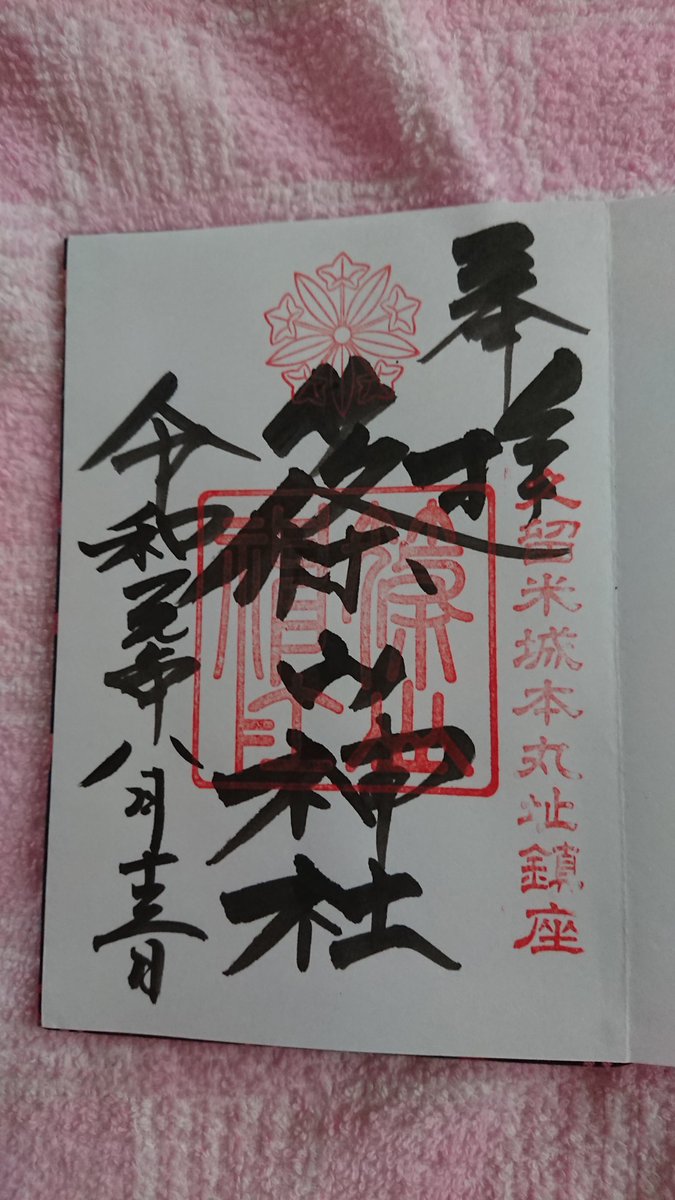 奉拝
久留米城本丸址鎮座
篠山神社
篠山神社
令和元年八月十三日